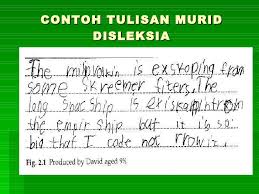 CONTOH TULISAN MURID
DISLEKSIA
The milinvoikin is exskaping from
some skreemer fiters. The
long snac ship is eriskapintrom
the empir ship but it is so
big that I code not rrow it.
Fig. 2.1 Produced by David aged 9½